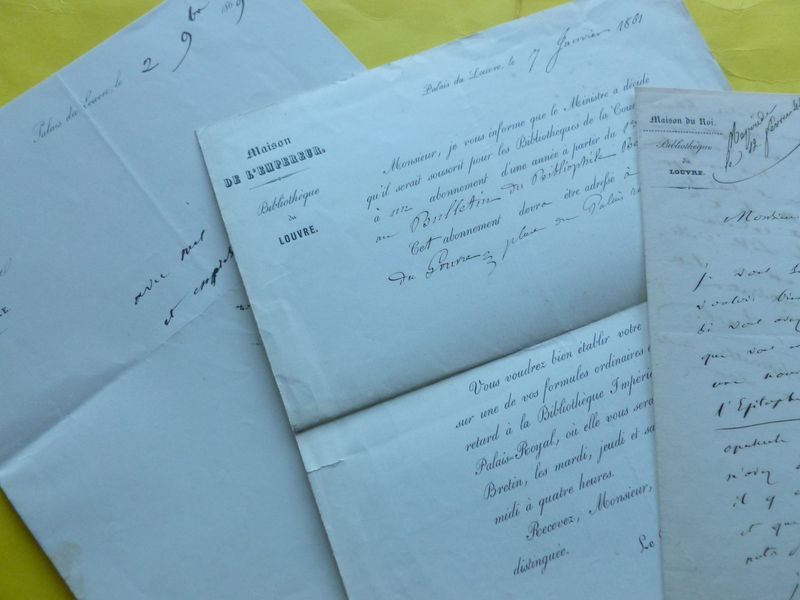 Palais du Louvre, le 2 9bre 1869
avec mil
et
Palais du Louvre, le 7 Janvier 1861
Maison
DE L'EMPEREUR.
Bibliothèque
du
LOUVRE.
Monsieur, je vous informe que le Ministre a décidé
qu'il serait souscrit pour les Bibliothèques de la Cour
à un abonnement d'une année à partir du 1er
au Bulletin du Bibliophile
Cet abonnement devra être adressé à
du Louvre, place du Palais
Vous voudrez bien établir votre
sur une de vos formules ordinaires
retard à la Bibliothèque Impéri
Palais-Royal, où elle vous sera
Bretin, les mardi, jeudi et sa
midi à quatre heures.
Recevez, Monsieur,
distinguée.
Le
Maison du Roi.
Bibliothèque
du
LOUVRE.
Monsieur
je vous
vouloir bien
si vous avez
que vous
une nou
l'Epitaph
opuscule
n'avez
il y
et que